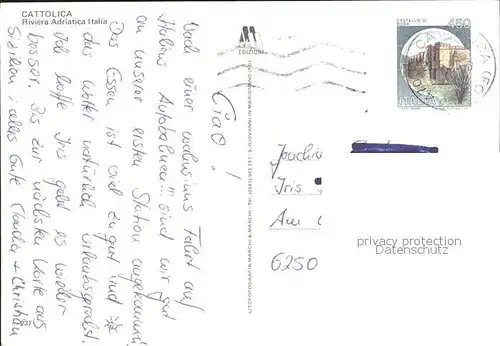 CATTOLICA
Riviera Adriatica Italia
Ciao!
Nach einer wahnsinns Fahrt auf
Italiens Autobahnen!!! sind wir gut
an unserer ersten Station angekommen!
Das Essen ist viel zu gut und
das Wetter natürlich urlaubsgemäß.
Ich hoffe Iris geht es wieder
besser. Bis zur nächsten Karte aus
Sizilien; alles Gute Claudia + Christian
237
EDIZIONI
LITOFOTOGRAFIA MARCHI & MARCHI - Tel. (0541) 955 157 - S. GIOVANNI IN MARIGNANO (FO)
CASTELLO DI
450
ITALIA
CATTOLICA (FO)
Joachim
Iris
Am
6250
privacy protection
Datenschutz